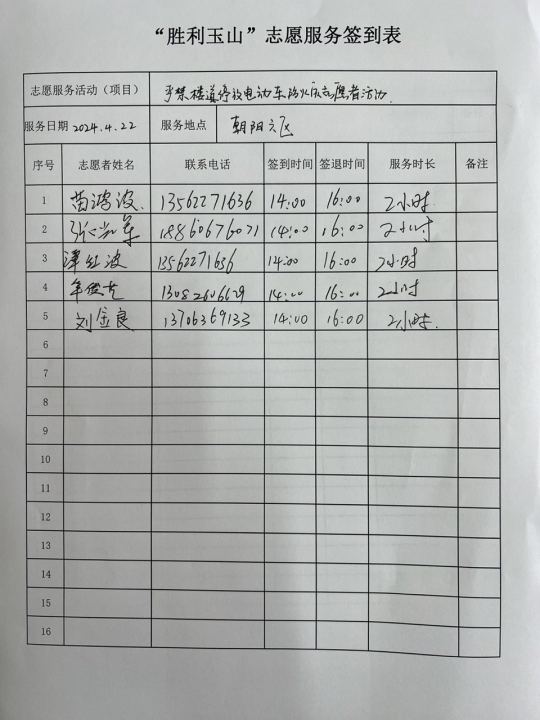 “胜利玉山”志愿服务签到表
志愿服务活动（项目） 严禁楼道停放电动车防火志愿者活动.
服务日期 2024.4.22 服务地点 朝阳六区
序号 志愿者姓名 联系电话 签到时间 签退时间 服务时长 备注
1 苗鸿波. 13562271636 14:00 16:00 2小时
2 18860676071 14:00 16:00 2小时
3 13562271636 14:00 16:00 2小时
4 14:00 16:00 2小时
5 刘金良 13706369133 14:00 16:00 2小时.
6
7
8
9
10
11
12
13
14
15
16